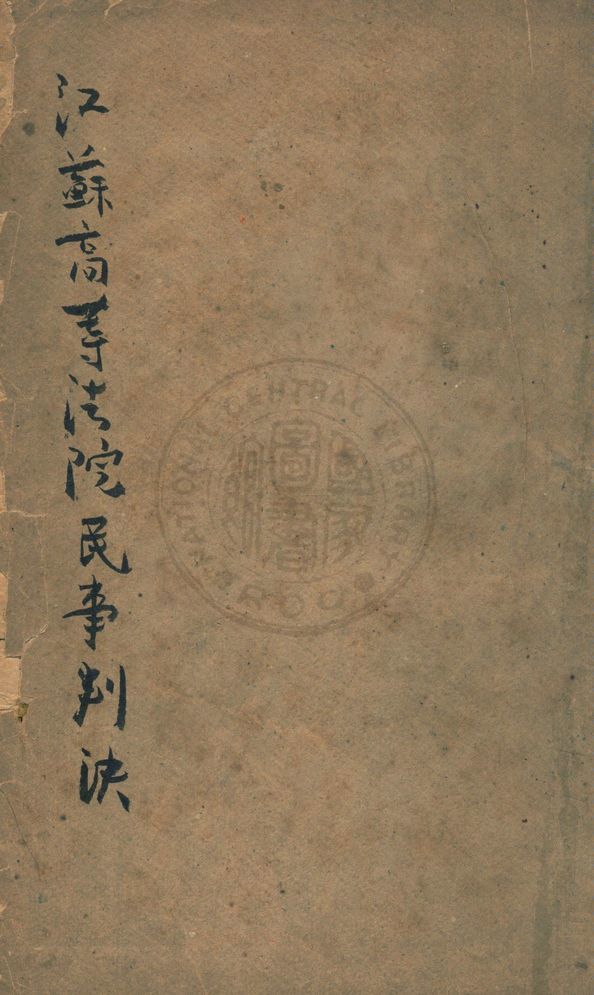 江蘇高等法院民事判決
NATIONAL CENTRAL LIBRARY
ROOB
國家圖書館